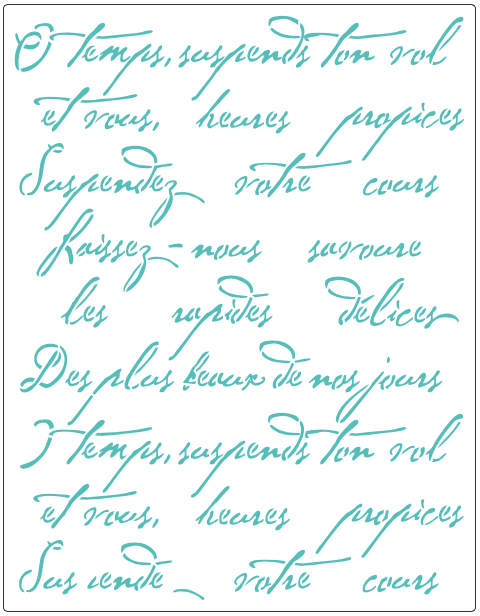 Ô temps, suspends ton vol
et vous, heures propices
Suspendez votre cours
Laissez-nous savoure
les rapides délices
Des plus beaux de nos jours
temps, suspends ton vol
et vous, heures propices
Sus ende votre cours